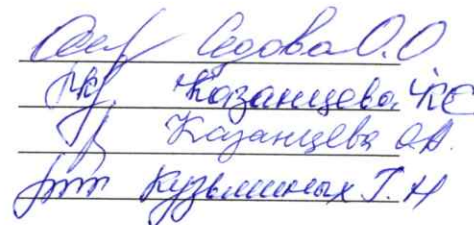 Седова О.О
Казанцева К С
Казанцева О.А.
Кузьминых Т.Н